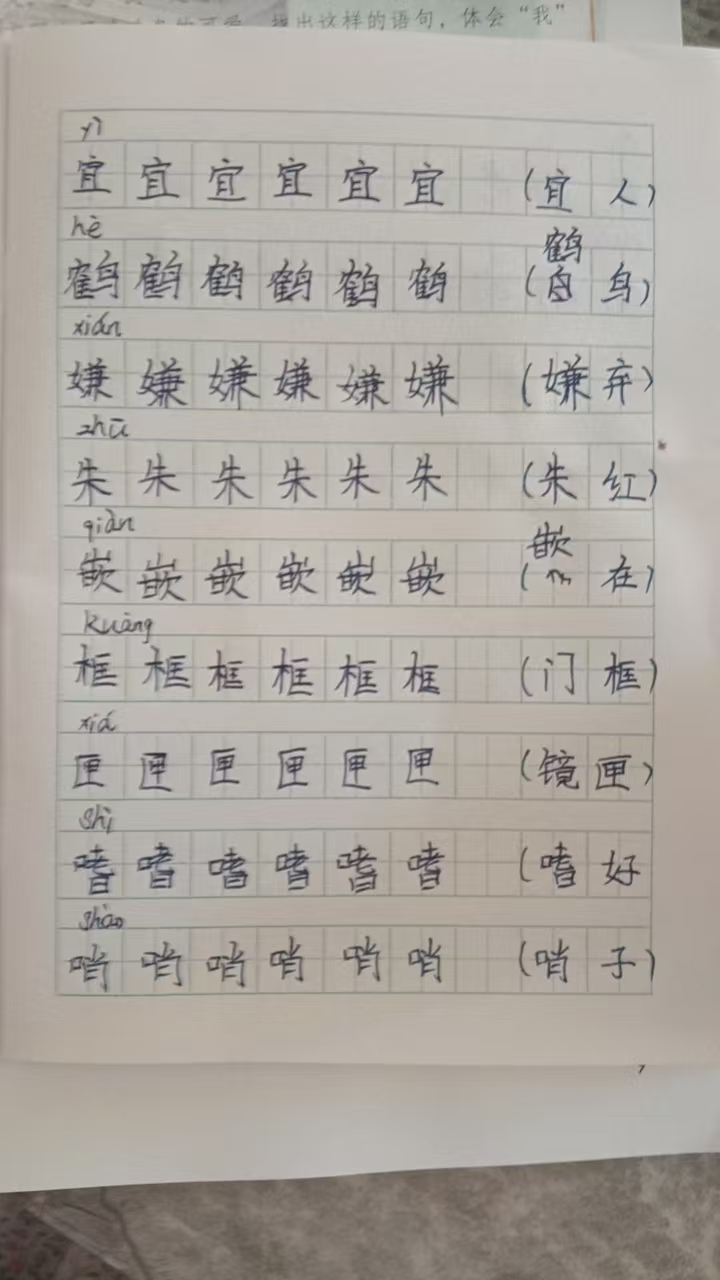 找出这样的语句，体会“我”
yì
宜 宜 宜 宜 宜 宜 (宜 人)
hè
鹤
鹤 鹤 鹤 鹤 鹤 鹤 (白 鸟)
xián
嫌 嫌 嫌 嫌 嫌 嫌 (嫌 弃)
zhū
朱 朱 朱 朱 朱 朱 (朱 红)
qiàn
嵌
嵌 嵌 嵌 嵌 嵌 嵌 ( 在)
Kuàng
框 框 框 框 框 框 (门 框)
xiá
匣 匣 匣 匣 匣 匣 (镜 匣)
shì
嗜 嗜 嗜 嗜 嗜 嗜 (嗜 好
shào
哨 哨 哨 哨 哨 哨 (哨 子)